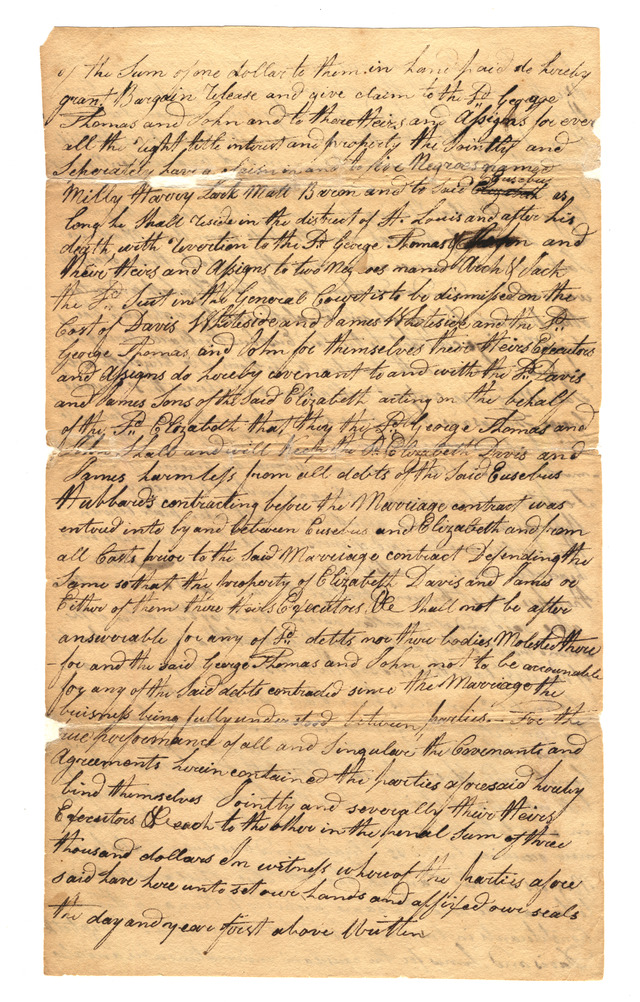 of the Sum of one dollar to them in hand paid do hereby
grant Bargain release and give claim to the Sd. George
Thomas and John and to there Heirs and Assigns for ever
all the right title interest and property the Jointly and
Seperately have or claim in and to five Negroes named
Milly Harvey Jack Matt Bacon and to Said Eusebus as
long he shall reside in the district of St. Louis and after his
death with revertion to the Sd. George Thomas & John and
there Heirs and Assigns to two Negroes named Arch & Jack
the Sd. Suit in the General Court is to be dismissed on the
Cost of Davis Whiteside and James Whiteside and the Sd.
George Thomas and John for themselves their Heirs Executors
and Assigns do hereby covenant to and with the Sd. Davis
and James Sons of the Said Elizabeth acting on the behalf
of the Sd. Elizabeth that they the Sd. George Thomas and
John shall and will keep the Sd. Elizabeth Davis and
James harmless from all debts of the Said Eusebus
Hubbard's contracting before the Marriage contract was
entered into by and between Eusebus and Elizabeth and from
all Costs prior to the Said Marriage contract Defending the
Same so that the property of Elizabeth Davis and James or
Either of them there Heirs Executors &c shall not be after
answerable for any of Sd. debts nor there bodies Molested there
for and the said George Thomas and John not to be accounable
for any of the Said debts contracted since the Marriage the
buisness being fully understood between parties — For the
true Performance of all and Singular the Covenants and
Agreements herein contained the parties aforesaid hereby
bind themselves Jointly and severally their Heirs
Executors &c each to the other in the penal Sum of three
thousand dollars In witness whereof the parties afore
said have here unto set our hands and affixed our seals
the day and year first above Written